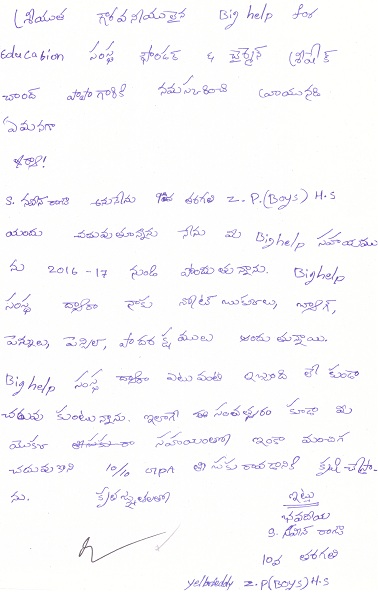 శ్రీయుత గౌరవనీయులైన Big help ఫర్
Education సంస్థ ఫౌండర్ & చైర్మన్
చాంద్ పాషా గారికి నమస్కరించి వ్రాయునది
ఏమనగా
అయ్యా!
S. నవీన్ అను నేను 9వ తరగతి Z.P.(Boys) H.S
యందు చదువుతూన్నాను నేను మీ Big help సహాయము
ను 2016-17 నుండి పొందుతున్నాను. Big help
సంస్థ ద్వారా నాకు నోట్ బుకులు, బ్యాగ్,
పెన్నులు, పెన్సిల్, పాదరక్షములు అందుతున్నాయి.
Big help సంస్థ ద్వారా ఎటువంటి ఇబ్బంది లేకుండా
చదువుకుంటున్నాను. ఇలాగే ఈ సంవత్సరం కూడా మీ
యొక్క సహాయంతో ఇంకా మంచిగ
చదువుకొని 10/10 GPA తీసుకురావడానికి కృషి చేస్తా
ను. కృతజ్ఞతలతో
ఇట్లు
భవదీయ
S. నవీన్
10వ తరగతి
Z.P(Boys) H.S